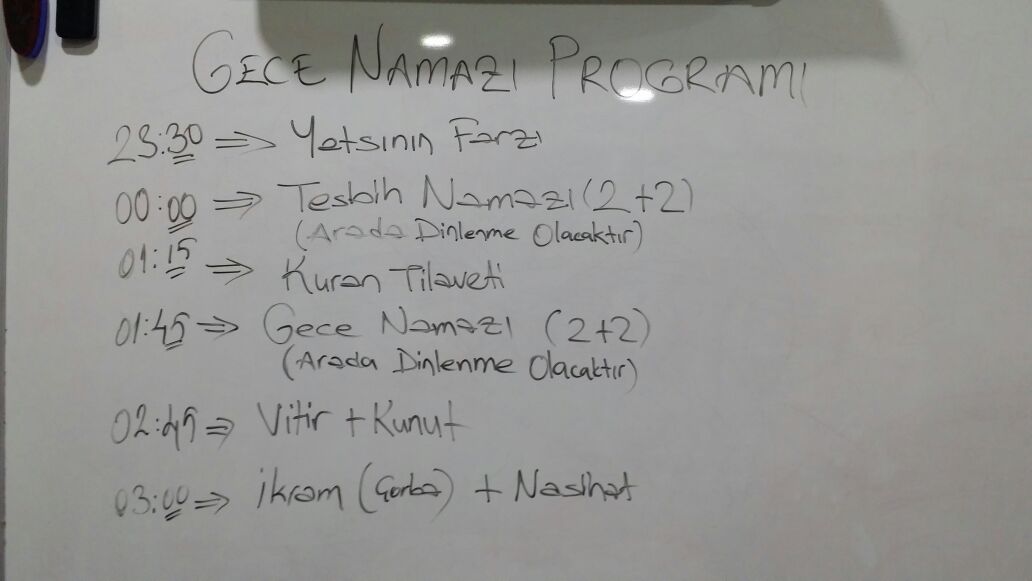 GECE NAMAZI PROGRAMI
23:30 ⇒ Yatsının Farzı
00:00 ⇒ Tesbih Namazı (2+2)
(Arada Dinlenme Olacaktır)
01:15 ⇒ Kuran Tilaveti
01:45 ⇒ Gece Namazı (2+2)
(Arada Dinlenme Olacaktır)
02:45 ⇒ Vitir + Kunut
03:00 ⇒ ikram (Çorba) + Nasihat